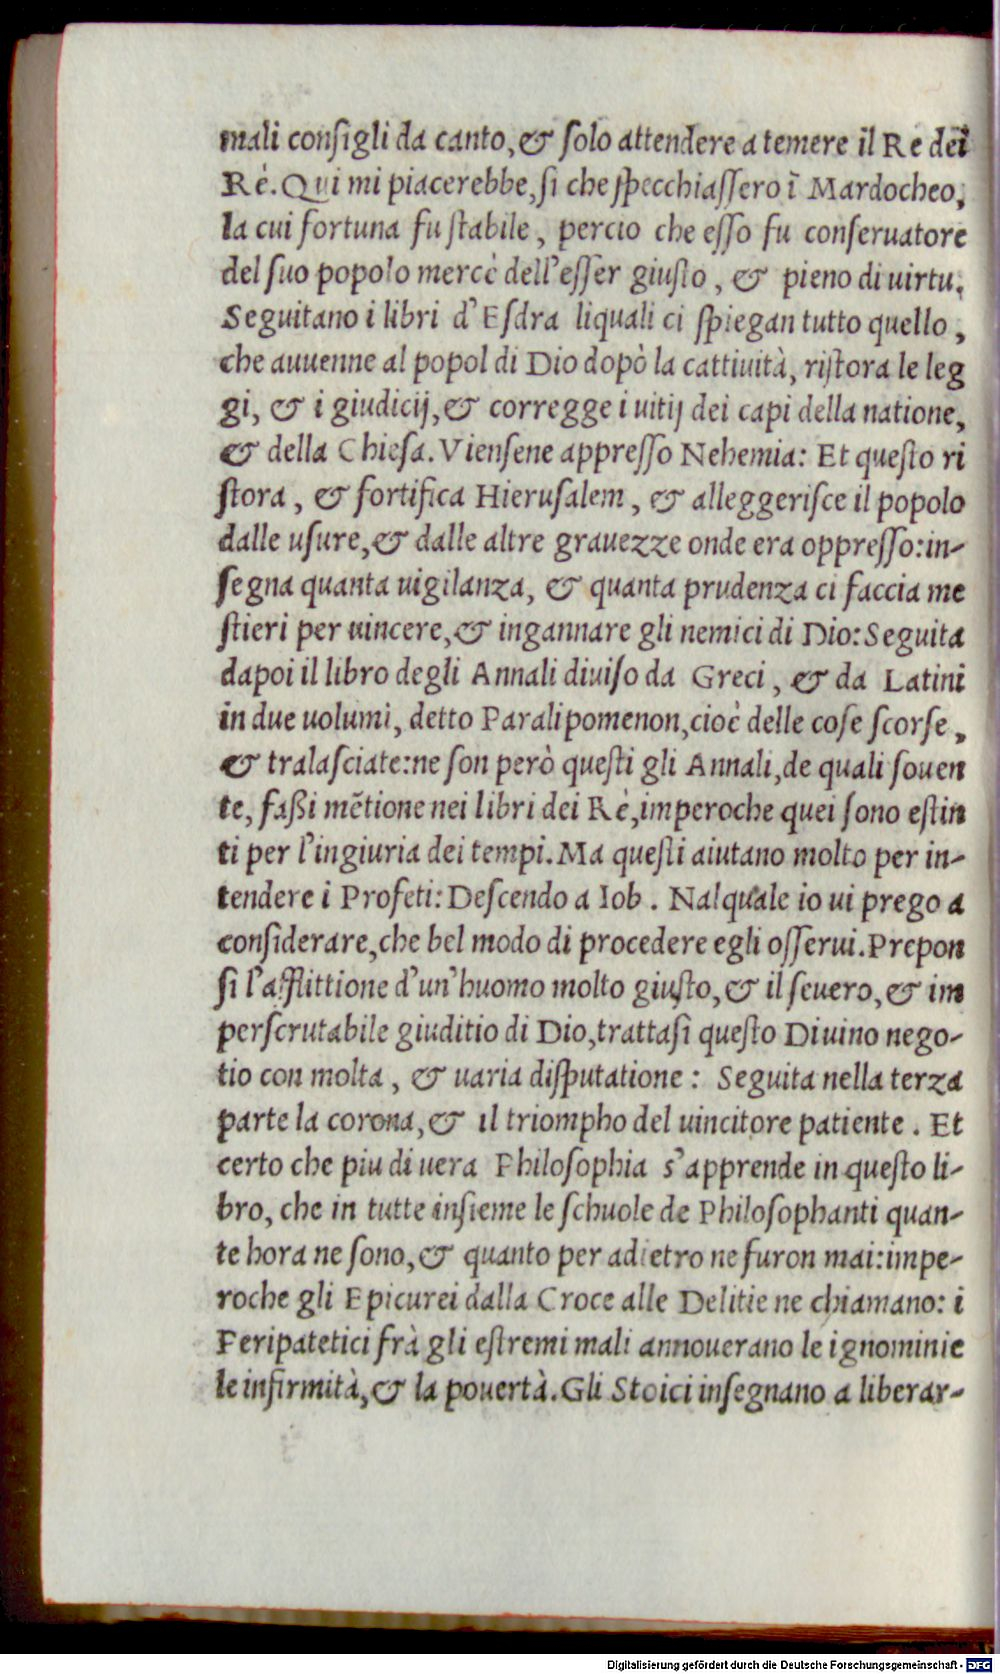 mali consigli da canto, & solo attendere a temere il Re dei
Rè. Qui mi piacerebbe, si che specchiassero ĩ Mardocheo,
la cui fortuna fu stabile, percio che esso fu conseruatore
del suo popolo mercè dell'esser giusto, & pieno di uirtu.
Seguitano i libri d'Esdra liquali ci spiegan tutto quello,
che auuenne al popol di Dio dopò la cattiuità, ristora le leg
gi, & i giudicij, & corregge i uitij dei capi della natione,
& della Chiesa. Viensene appresso Nehemia: Et questo ri
stora, & fortifica Hierusalem, & alleggerisce il popolo
dalle usure, & dalle altre grauezze onde era oppresso: in-
segna quanta uigilanza, & quanta prudenza ci faccia me
stieri per uincere, & ingannare gli nemici di Dio: Seguita
dapoi il libro degli Annali diuiso da Greci, & da Latini
in due uolumi, detto Paralipomenon, cioè delle cose scorse,
& tralasciate: ne son però questi gli Annali, de quali souen
te, fassi mẽtione nei libri dei Rè, imperoche quei sono estin
ti per l'ingiuria dei tempi. Ma questi aiutano molto per in-
tendere i Profeti: Descendo a Iob. Nalquale io ui prego a
considerare, che bel modo di procedere egli osserui. Prepon
si l'afflittione d'un'huomo molto giusto, & il seuero, & im
perscrutabile giuditio di Dio, trattasi questo Diuino nego-
tio con molta, & uaria disputatione: Seguita nella terza
parte la corona, & il triompho del uincitore patiente. Et
certo che piu di uera Philosophia s'apprende in questo li-
bro, che in tutte insieme le schuole de Philosophanti quan-
te hora ne sono, & quanto per adietro ne furon mai: impe-
roche gli Epicurei dalla Croce alle Delitie ne chiamano: i
Peripatetici frà gli estremi mali annouerano le ignominie
le infirmità, & la pouertà. Gli Stoici insegnano a liberar-
Digitalisierung gefördert durch die Deutsche Forschungsgemeinschaft - DFG